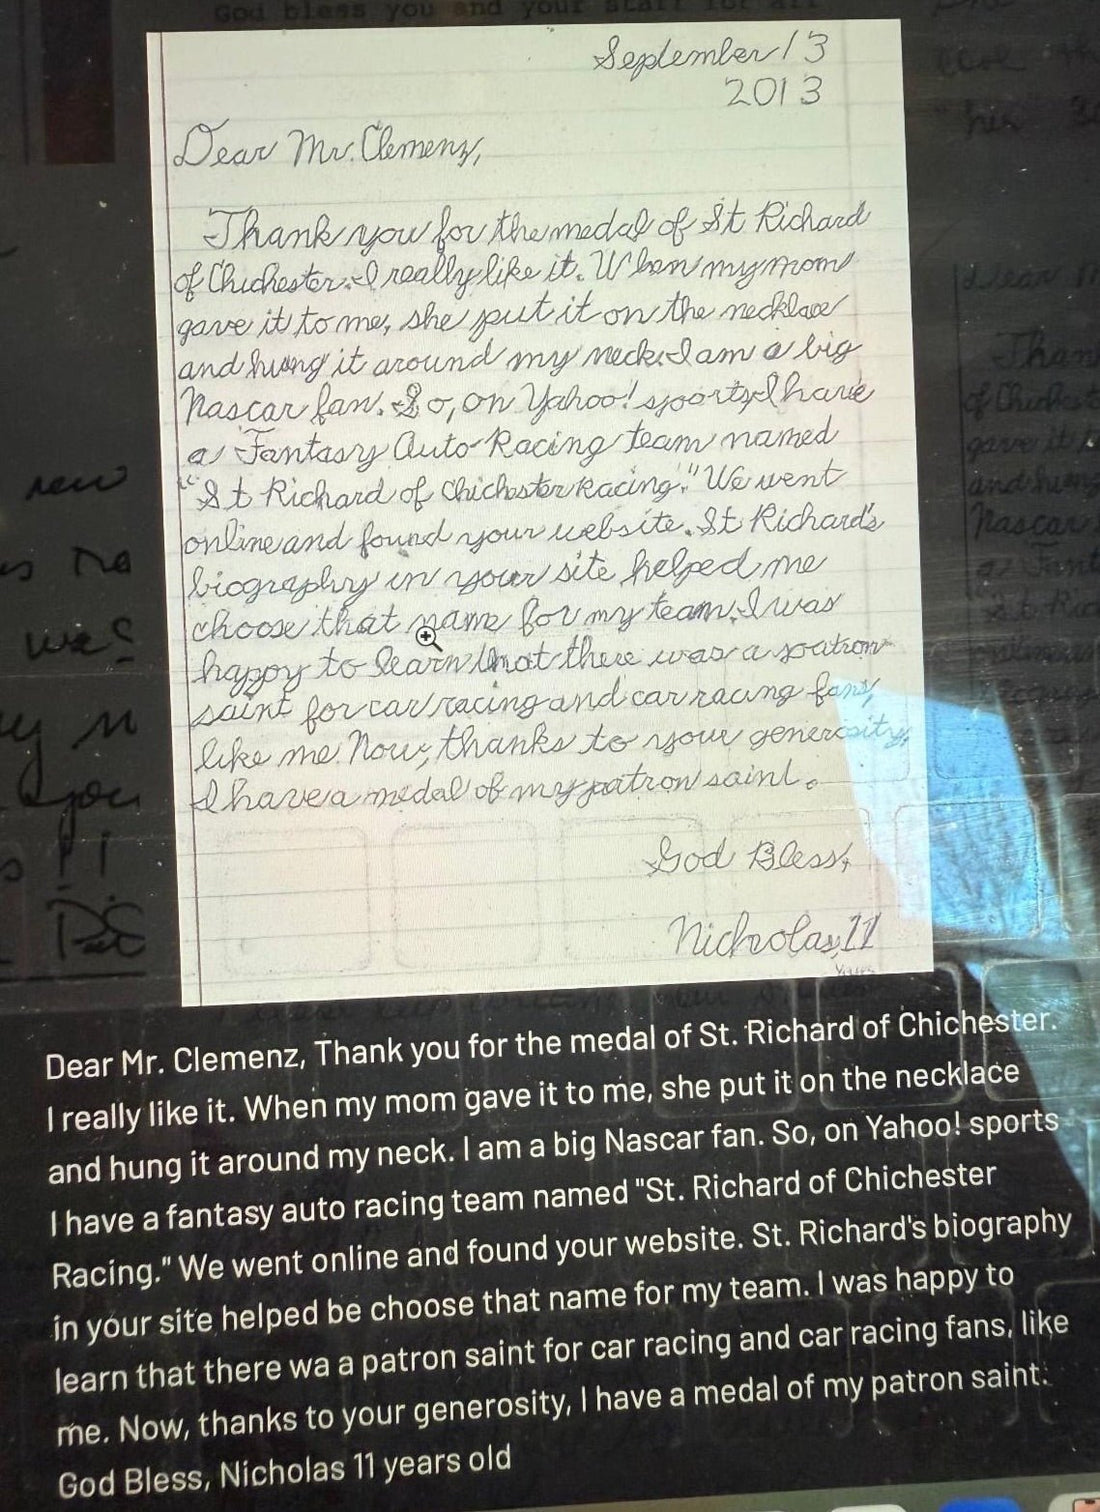 God bless you and your staff for all
September 13
2013
Dear Mr. Clemenz,
Thank you for the medal of St Richard
of Chichester. I really like it. When my mom
gave it to me, she put it on the necklace
and hung it around my neck. I am a big
Nascar fan. So, on Yahoo! sports I have
a Fantasy Auto Racing team named
"St Richard of Chichester Racing." We went
online and found your website. St Richard's
biography in your site helped me
choose that name for my team. I was
happy to learn that there was a patron
saint for car racing and car racing fans,
like me. Now, thanks to your generosity,
I have a medal of my patron saint.
God Bless,
Nicholas, 11
years
new
was
you
Dear
Than
of Chichest
gave it
and hung
Nascar
a Fant
Dear Mr. Clemenz, Thank you for the medal of St. Richard of Chichester.
I really like it. When my mom gave it to me, she put it on the necklace
and hung it around my neck. I am a big Nascar fan. So, on Yahoo! sports
I have a fantasy auto racing team named "St. Richard of Chichester
Racing." We went online and found your website. St. Richard's biography
in your site helped be choose that name for my team. I was happy to
learn that there wa a patron saint for car racing and car racing fans, like
me. Now, thanks to your generosity, I have a medal of my patron saint.
God Bless, Nicholas 11 years old